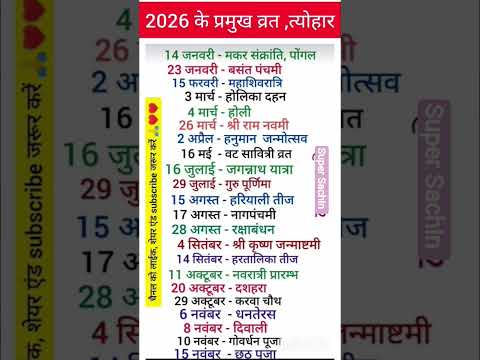 2026 के प्रमुख व्रत ,त्योहार
14 जनवरी - मकर संक्रांति, पोंगल
23 जनवरी - बसंत पंचमी
15 फरवरी - महाशिवरात्रि
3 मार्च - होलिका दहन
4 मार्च - होली
26 मार्च - श्री राम नवमी
2 अप्रैल - हनुमान जन्मोत्सव
16 मई - वट सावित्री व्रत
16 जुलाई - जगन्नाथ यात्रा
29 जुलाई - गुरु पूर्णिमा
15 अगस्त - हरियाली तीज
17 अगस्त - नागपंचमी
28 अगस्त - रक्षाबंधन
4 सितंबर - श्री कृष्ण जन्माष्टमी
14 सितंबर - हरतालिका तीज
11 अक्टूबर - नवरात्री प्रारम्भ
20 अक्टूबर - दशहरा
29 अक्टूबर - करवा चौथ
6 नवंबर - धनतेरस
8 नवंबर - दिवाली
10 नवंबर - गोवर्धन पूजा
15 नवंबर - छठ पूजा
चैनल को लाईक, शेयर एंड subscribe जरूर करें
Super Sachin